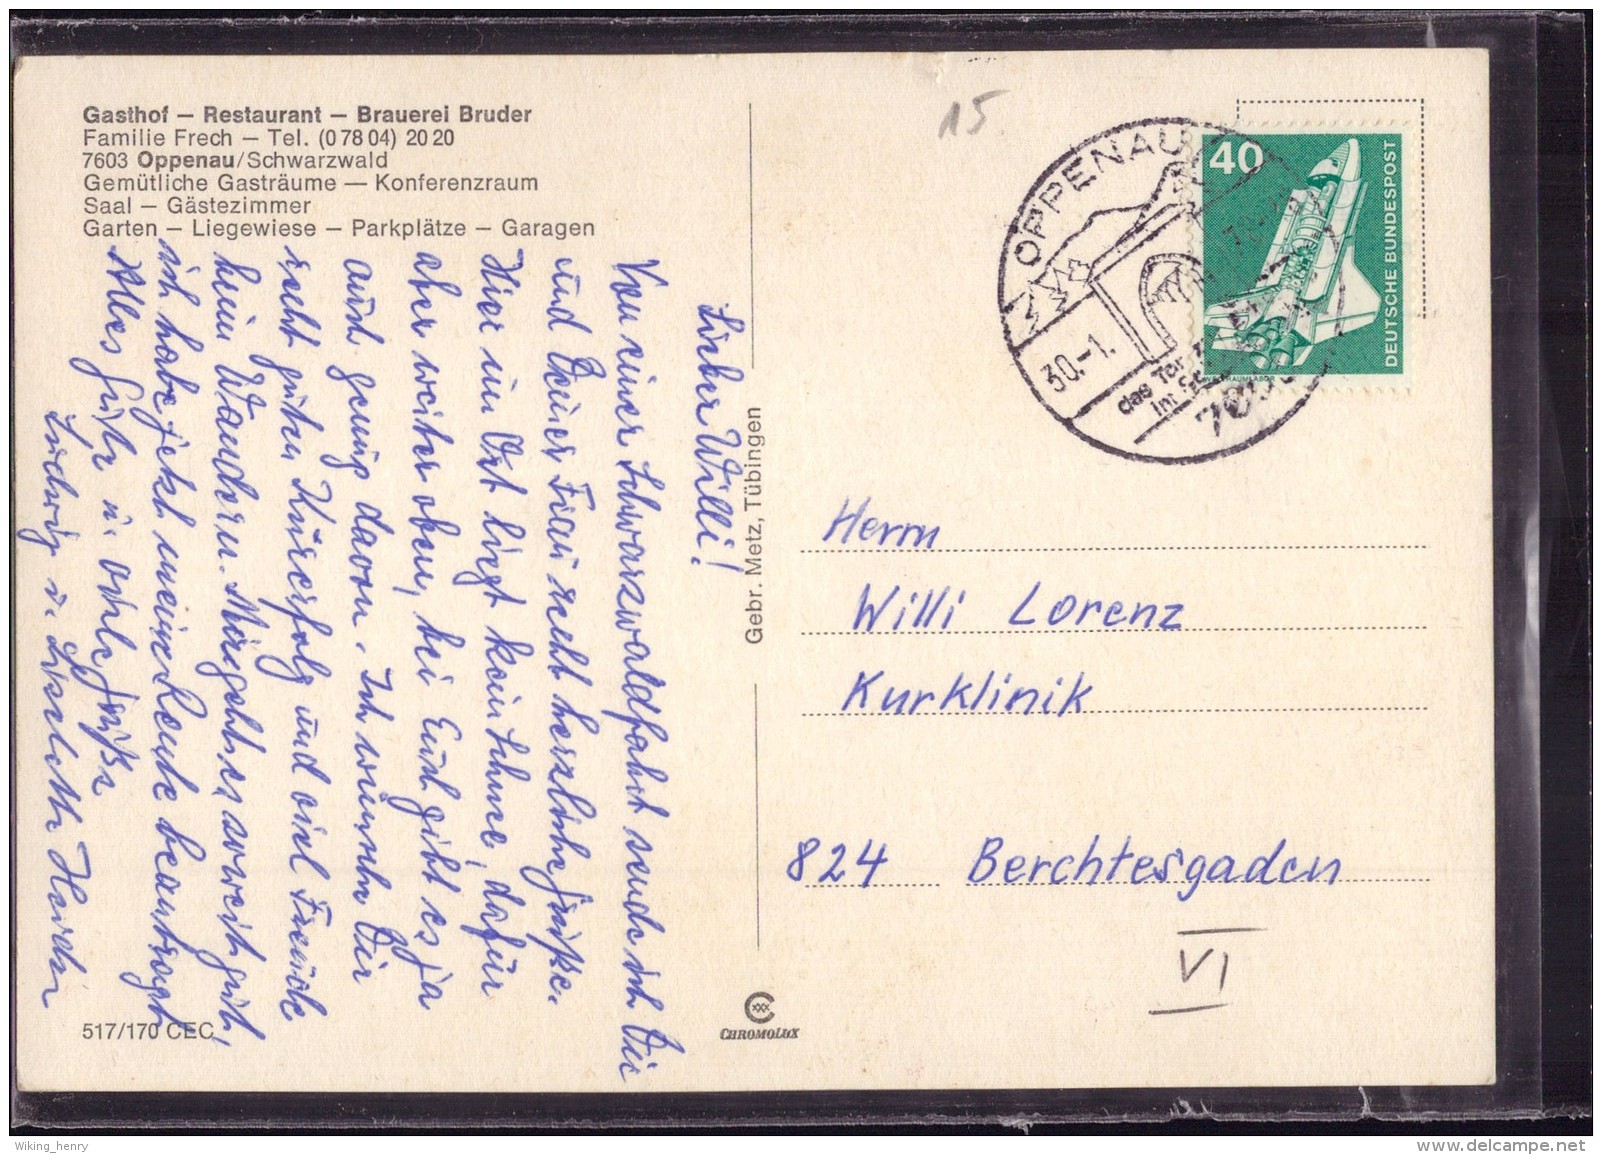 Gasthof – Restaurant – Brauerei Bruder
Familie Frech – Tel. (0 78 04) 20 20
7603 Oppenau/Schwarzwald
Gemütliche Gasträume — Konferenzraum
Saal – Gästezimmer
Garten – Liegewiese – Parkplätze – Garagen
Lieber Willi!
Von einer Schwarzwaldfahrt sende ich Dir
und Deiner Frau recht herzliche Grüße.
Hier im Ort liegt kein Schnee, dafür
aber weiter oben, bei Euch gibt es ja
auch genug davon. Ich wünsche Dir
recht guten Kurerfolg und viel Freude
beim Wandern. Mir geht es soweit gut,
ich habe jetzt meine Rente beantragt
Alles Gute u. viele Grüße
Ludwig u. Liselotte
517/170 CEC
Gebr. Metz, Tübingen
CHROMOLUX
15
OPPENAU
30.-1.
das Tor
im
40
DEUTSCHE BUNDESPOST
WELTRAUMLABOR
Herrn
Willi Lorenz
Kurklinik
824 Berchtesgaden
VI
Wiking_henry
www.delcampe.net